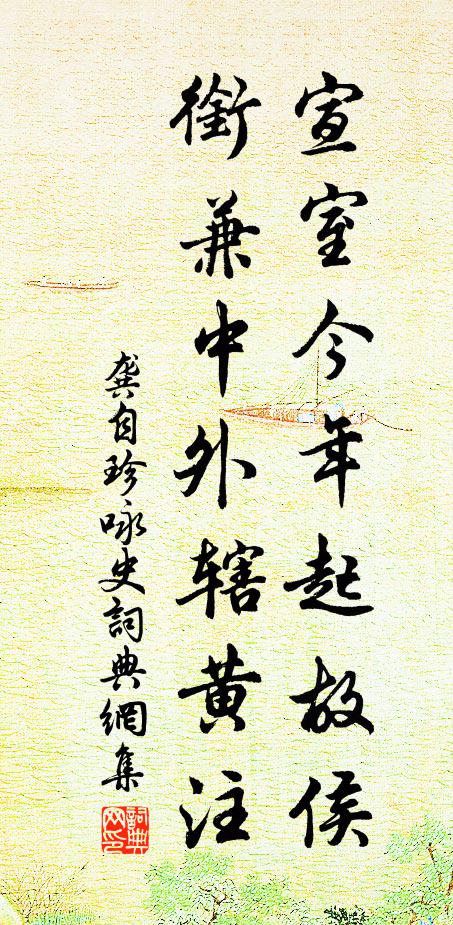 宣室今年起故侯
銜兼中外辖黄注
龚自珍咏史詞典網集
詞典網印